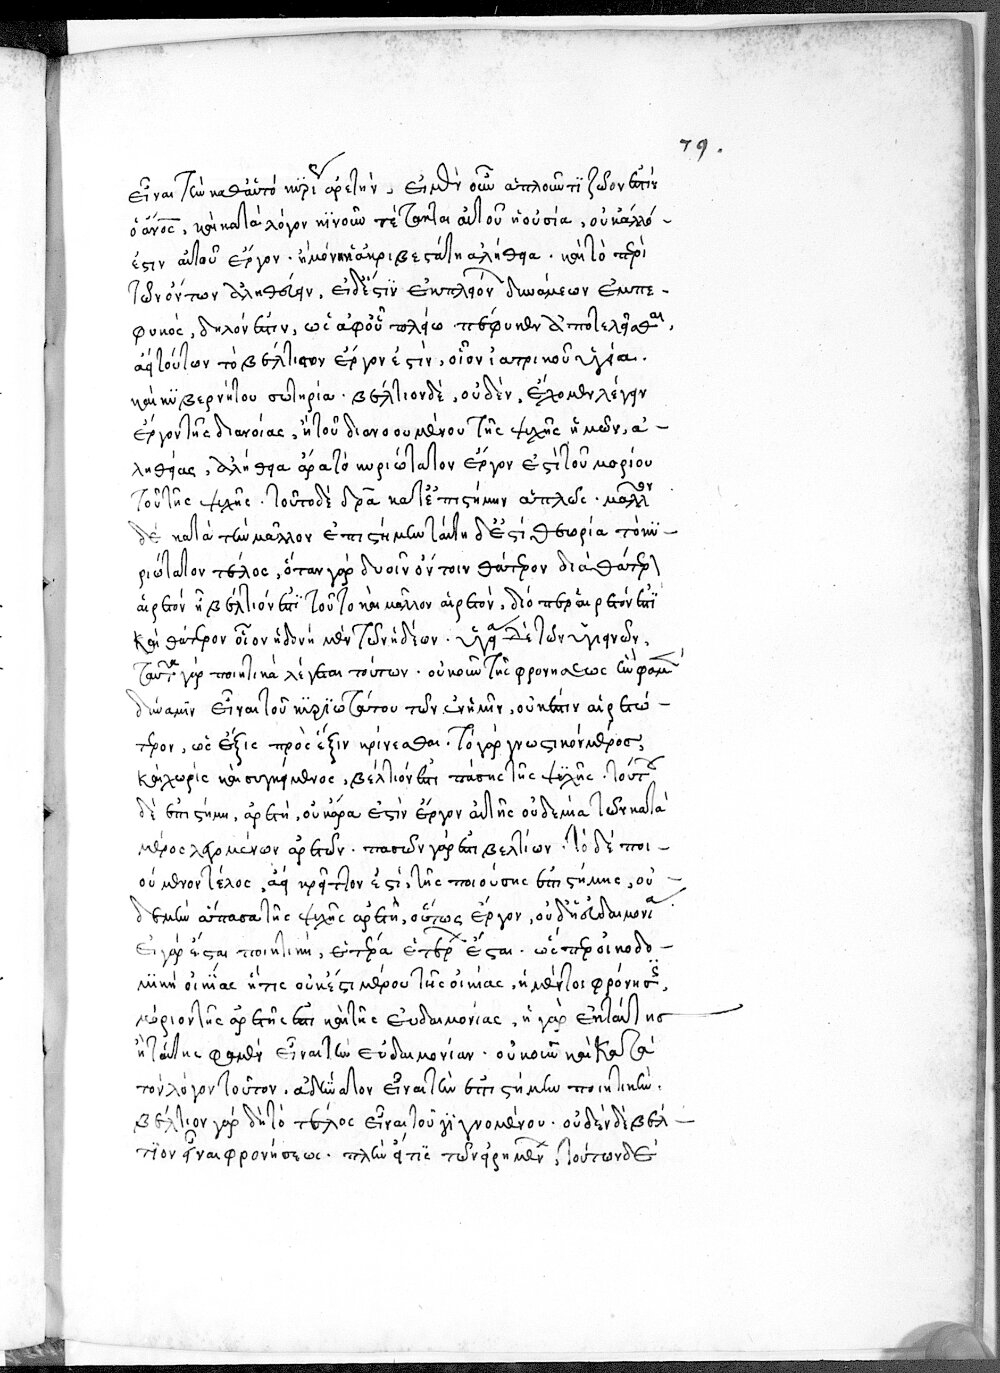 79.
εἶναι τὴν καθ' αὑτὸ κυρί ἀρετήν, εἰ μὲν οὖν ἁπλοῦν τι ζῶον ἐστὶν
ὁ ἄνος, καὶ κατὰ λόγον καὶ νοῦν τέτακται αὐτοῦ ἡ οὐσία, οὐκ ἄλλό–
ἐστιν αὐτοῦ ἔργον· ἢ μόνη ἡ ἀκριβεστάτη ἀλήθεια· καὶ τὸ περὶ
τῶν ὄντων ἀληθεύειν, εἰ δ' ἐστὶν ἐκ πλειόν δυνάμεων ἐμπε–
φυκός, δηλόν ἐστιν, ὡς ἀφ' οὗ πλείω πέφυκεν ἀποτελεῖσθαι,
ἀεὶ τούτων τὸ βέλτιστον ἔργον ἐστὶν, οἷον ἰατρικοῦ ὑγεία.
καὶ κυβερνήτου σωτηρία· βέλτιον δὲ, οὐδὲν, ἔχομεν λέγειν
ἔργον τῆς διανοίας, ἢ τοῦ διανοουμένου τῆς ψυχῆς ἡμῶν, ἀ–
ληθείας, ἀλήθεια ἄρα τὸ κυριώτατον ἔργον ἐστὶ τοῦ μορίου
τοῦ τῆς ψυχῆς· τοῦτο δὲ δρᾶ κατ' ἐπιστήμην ἁπλῶς· μᾶλλον
δὲ κατὰ τὴν μᾶλλον ἐπιστήμην ταύτη δ' ἐστὶ θεωρία τὸ κυ–
ριώτατον τέλος, ὅταν γὰρ δυοῖν ὄντοιν θάτερον διὰ θάτερ
αἱρετὸν ἢ βέλτιόν ἐστι τοῦτο καὶ μᾶλλον αἱρετόν, διό περ αἱρετόν ἐστι
καὶ θάτερον οἷον ἡδονὴ μὲν τῶν ἡδέων· ὑγεία δὲ τῶν ὑγιεινῶν,
ταῦτα γὰρ ποιητικὰ λέγεται τούτων· οὐκοῦν τῆς φρονήσεως ἣν φαμ
δύναμιν εἶναι τοῦ κυριωτάτου τῶν ἐν ἡμῖν, οὐκ ἔστιν αἱρετώ–
τερον, ὡς ἕξις πρὸς ἕξιν κρίνεσθαι· τὸ γὰρ γνωστικὸν μέρος,
καὶ χωρὶς καὶ συγκείμενος, βέλτιόν ἐστι πάσης τῆς ψυχῆς· τούτου
δὲ ἐπιστήμη, ἀρετή, οὐκ ἄρα ἐστὶν ἔργον αὐτῆς οὐδεμία τῶν κατὰ
μέρος λεγομένων ἀρετῶν· πασῶν γάρ ἐστι βελτίων· τὸ δὲ ποι–
ούμενον τέλος, ἀεὶ κρεῖττον ἐστὶ, τῆς ποιούσης ἐπιστήμης, οὐ–
δὲ μὴν ἅπασα τῆς ψυχῆς ἀρετὴ, οὕτως ἔργον, οὐδ' ἡ εὐδαιμονία.
εἰ γὰρ ἔσται ποιητικὴ, ἑτέρα ἑτέρ ἔσται· ὥσπερ οἰκοδο–
μικὴ οἰκίας ἥτις οὐκ ἔστι μέρος τῆς οἰκίας, ἡ μέντοι φρόνησις,
μόριον τῆς ἀρετῆς ἐστι καὶ τῆς εὐδαιμονίας, ἢ γὰρ ἐκ ταύτης
ἢ ταύτης φαμὲν εἶναι τὴν εὐδαιμονίαν· οὐκοῦν καὶ κατὰ
τὸν λόγον τοῦτον, ἀδύνατον εἶναι τὴν ἐπιστήμην ποιητικήν.
βέλτιον γὰρ δεῖ τὸ τέλος εἶναι τοῦ γιγνομένου· οὐδὲν δὲ βέλ–
τιον εἶναι φρονήσεως· πλὴν εἴ τις τῶν εἰρημένων, τούτων δὲ